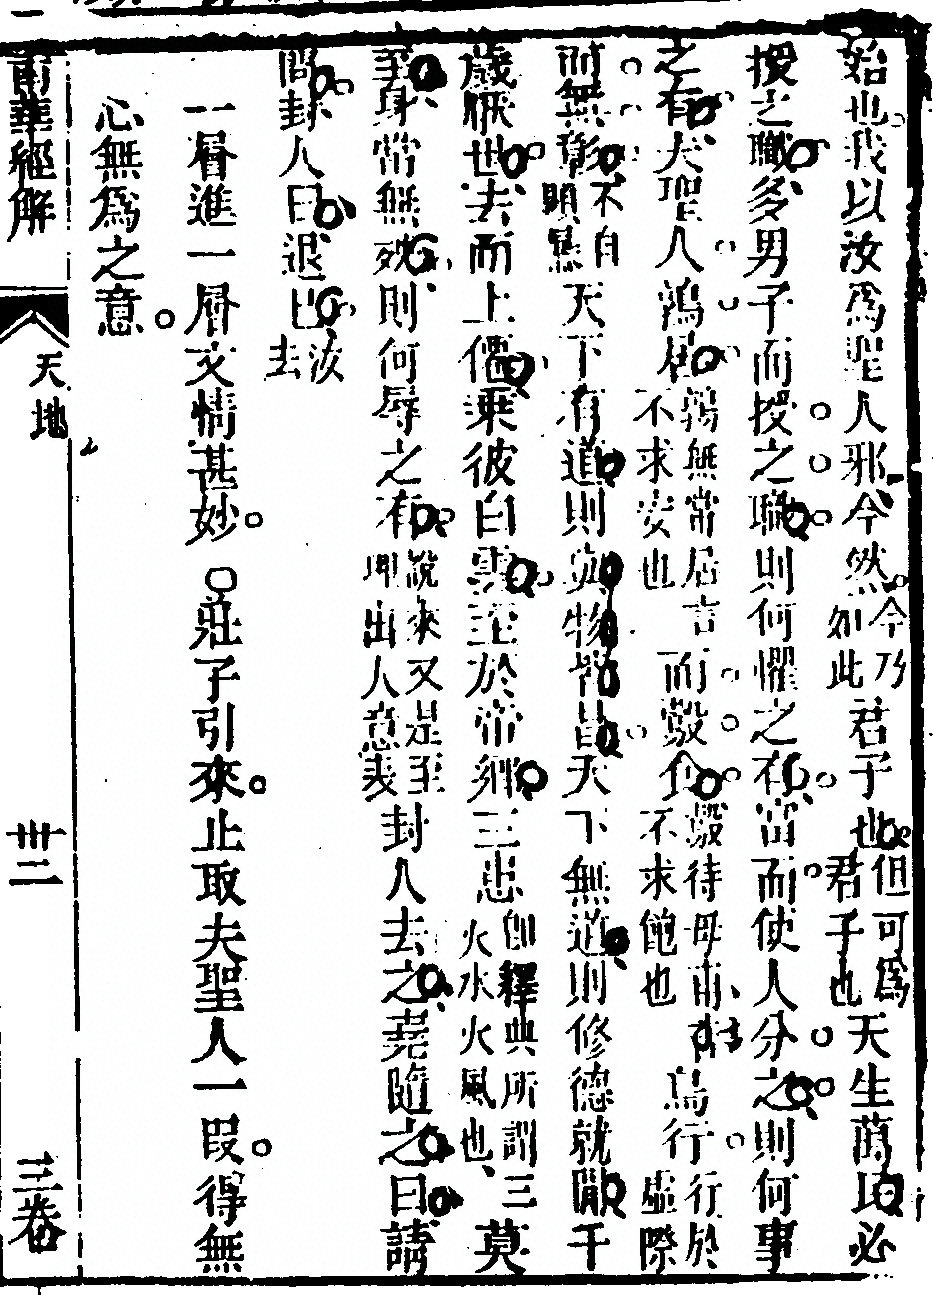 始也我以汝爲聖人邪今然今乃如此君子也但可爲君子也天生萬民必
授之職多男子而授之職則何懼之有富而使人分之則何事
之有夫聖人鶉居鶉無常居言不求安也而鷇食鷇待母哺不求飽也鳥行行於虛際
而無彰不自顯暴天下有道則與物皆昌天下無道則修德就閒千
歲厭世去而上僊乘彼白雲至於帝鄉三患卽釋典所謂三火水火風也莫
至身常無殃則何辱之有說來又是至理出人意表封人去之堯隨之曰請
問封人曰退已汝去
一層進一層文情甚妙○莊子引來止取夫聖人一段得無
心無爲之意
南華經解
天地
卅二
三卷